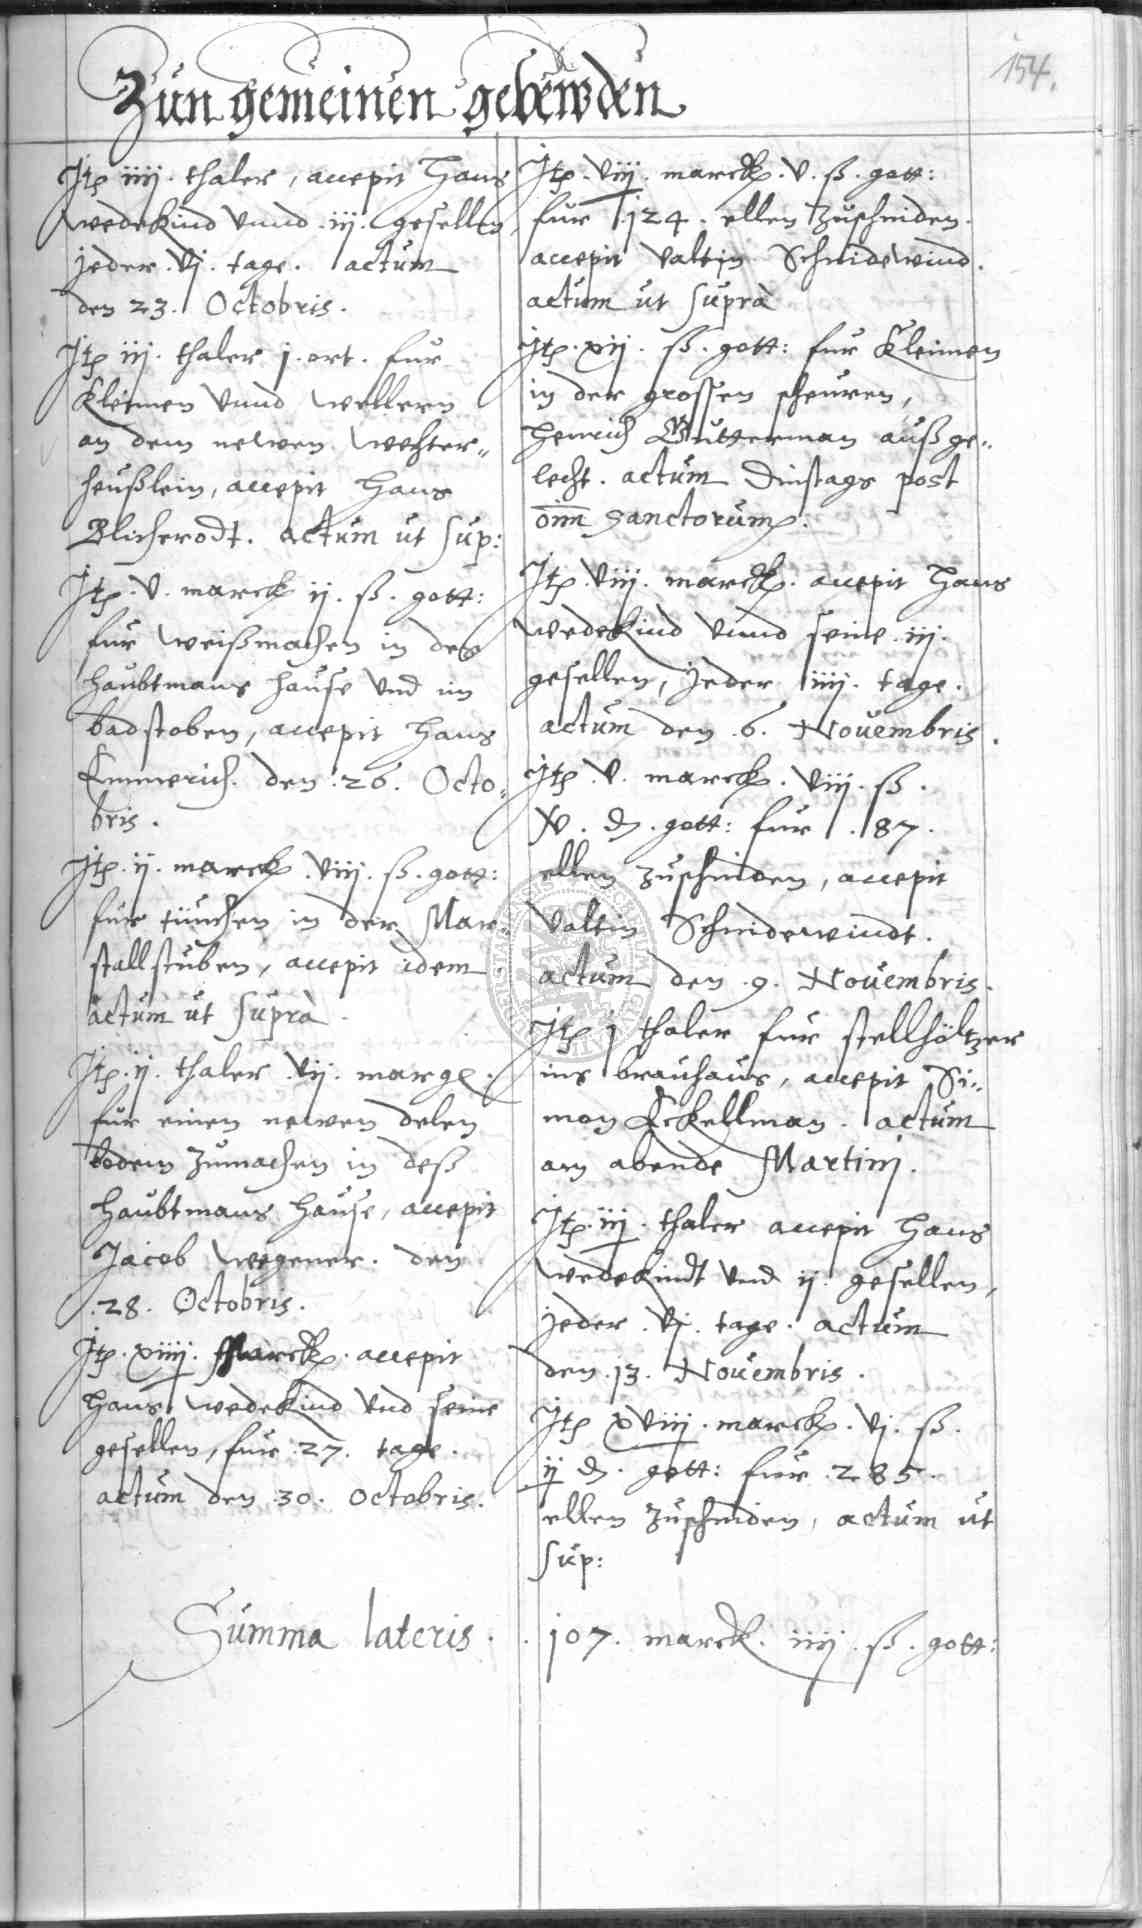 154.
Zun gemeinen gebewden
Jtē iiij. thaler, accepit Hans
Wedekind vnnd .iij. gesellen,
jeder .vj. tage. actum
den 23. Octobris.
Jtē iij. thaler j. ort. fur
Kleimen vnnd wellern
an dem newen wechter„
heußlein, accepit Hans
Blicherodt. actum ut sup:
Jtē .v. marck ij. ß. gott:
fur weißmachen in des
haubtmans hause vnd im
badstoben, accepit Hans
Emmerich. den .26. Octo„
bris.
Jtē .ij. marck .viij. ß. gott:
fur tünchen in der Mar„
stallstuben, accepit idem
actum ut suprà.
Jtē .ij. thaler .vij. margk.
fur einen newen delen
bodem zumachen in deß
haubtmans hause, accepit
Jacob Wegener. den
.28. Octobris.
Jtē .xiiij. Marck. accepit
Hans Wedekind vnd seine
gesellen, fur .27. tage.
actum den .30. Octobris.
Jtē .viij. marck .v. ß. gott:
fur .124. ellen zuschniden.
accepit Valtin Schnidewind.
actum ut suprà
Jtē .xij. ß. gott: fur Kleimen
in der grossen scheuren,
Henrich Gutterman außge„
lecht. actum Dinstags post
oīm Sanctorum.
Jtē .viij. marck. accepit Hans
Wedekind vnnd seine .iij.
gesellen, jeder iiij. tage.
actum den .6. Nouembris.
Jtē .v. marck .viij. ß.
xv. ₰. gott: fur .187.
ellen zuschniden, accepit
Valtin Schnidewindt.
actum den .9. Nouembris.
Jtē j thaler fur stellhöltzer
ins brauhaus, accepit Si„
mon Eckellman. actum
am abende Martinj.
Jtē .iij. thaler accepit Hans
Wedekindt vnd ij. gesellen,
jeder .vj. tage. actum
den .13. Nouembris.
Jtē xviij. marck .vj. ß.
ij ₰. gott: fur .285.
ellen zuschniden, actum ut
sup:
Summa lateris . . 107. marck. iiij. ß. gott: